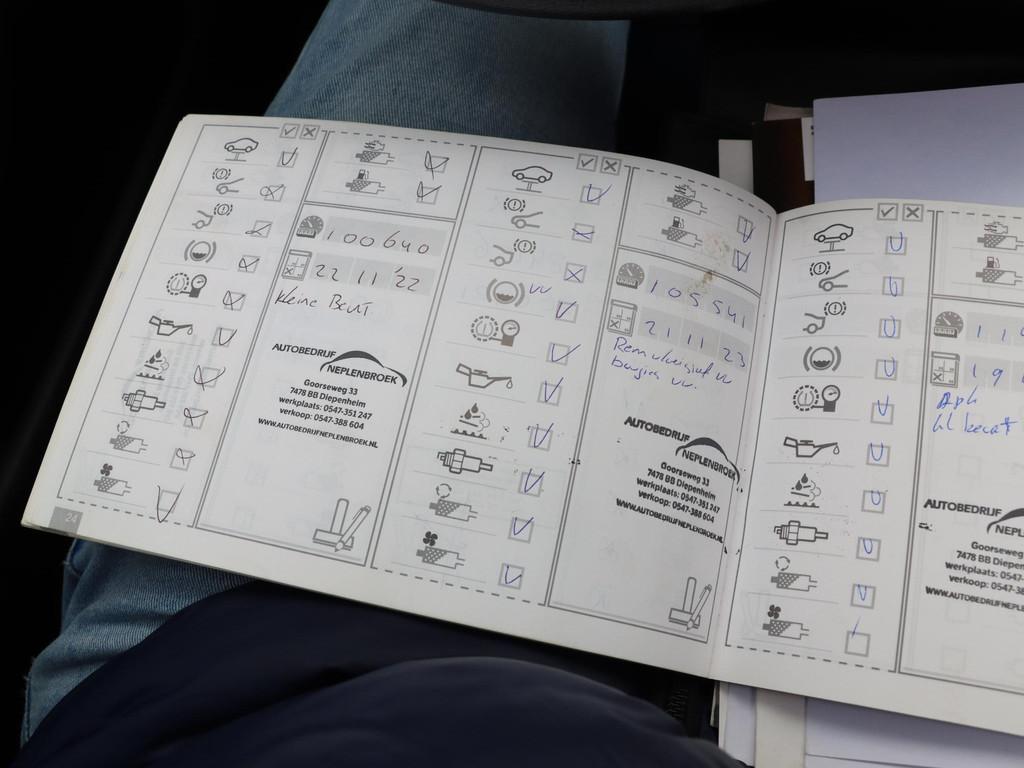 100640
22 11 '22
kleine Beurt
AUTOBEDRIJF
NEPLENBROEK
Goorseweg 33
7478 BB Diepenheim
werkplaats: 0547-351 247
verkoop: 0547-388 604
WWW.AUTOBEDRIJFNEPLENBROEK.NL
24
105541
21 11 23
Remvloeistof vv
bougies vv.
AUTOBEDRIJF
NEPLENBROEK
Goorseweg 33
7478 BB Diepenheim
werkplaats: 0547-351 247
verkoop: 0547-388 604
WWW.AUTOBEDRIJFNEPLENBROEK.NL
11
19
Apk
kl beurt
AUTOBEDRIJF
Goorseweg
7478 BB Diepen
werkplaats: 0547-
verkoop: 0547-38